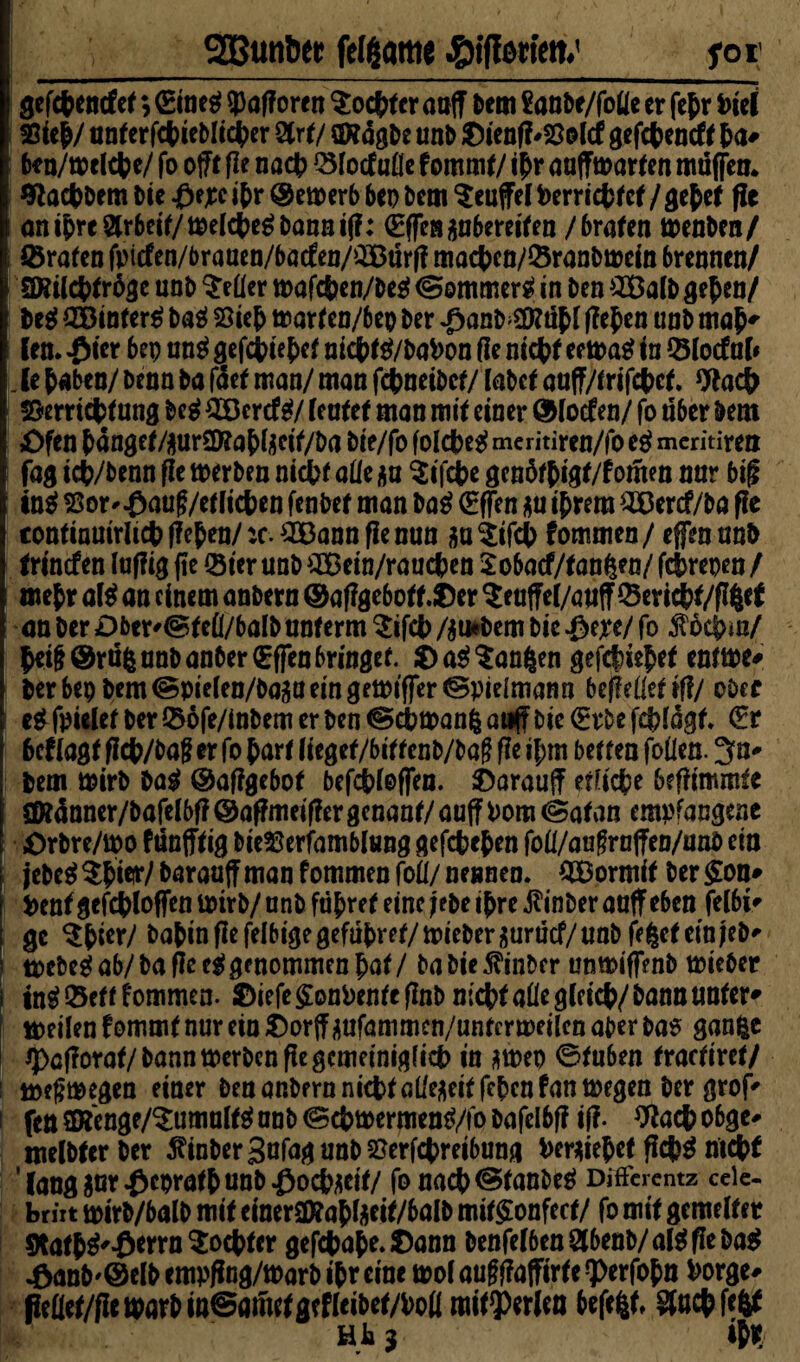 Wunder seltzame Historien.
501
geschencket; Eines Pastoren Tochter auff dem Lande/solle er sehr viel
Vieh/ unterschiedlicher Art/ Mägde und Dienst-Volck geschenckt ha-
ben/welche/ so offt sie nach Blockulle kommt/ ihr auffwarten müssen.
Nachdem die Hexe ihr Gewerb bey dem Teuffel verrichtet / gehet sie
an ihre Arbeit/ welches dann ist: Essen zubereiten / braten wenden/
Braten spicken/brauen/backen/Würst machen/Brandwein brennen/
Milchtröge und Teller waschen/des Sommers in den Wald gehen/
des Winters das Vieh warten/bey der Hand-Mühl stehen und mah-
len. Hier bey uns geschiehet nichts/davon sie nicht eewas in Blockul-
le haben/ denn da säet man/ man schneidet/ ladet auff/trischet. Nach
Verrichtung des Wercks/ leutet man mit einer Glocken/ so über dem
Ofen hänget/zur Mahlzeit/da die/so solches meritiren/so es meritiren
sag ich/denn sie werden nicht alle zu Tische genöthigt/komen nur biß
ins Vor-Hauß/etlichen sendet man das Essen zu ihrem Werck/da sie
continuirlich stehen/ rc. Wann sie nun zu Tisch kommen / essen und
trincken lustig sie Bier und Wein/rauchen Toback/tantzen/ schreyen /
mehr als an einem andern Gastgebott. Der Teuffel/auff Bericht/sitzet
an der Ober-Stell/bald unterm Tisch /zudem die Hexe/ so Köchin/
heiß Grütz und ander Essen bringet. Das Tantzen geschiehet entwe-
der bey dem Spielen/dazu ein gewisser Spielmann bestellet ist/ oder
es spielet der Böse/indem er den Schwantz auff die Erde schlägt. Er
beklagt sich/daß er so hart lieget/bittend/daß sie ihm betten sollen. In-
dem wird das Gastgebot beschlossen. Darauff etliche bestimmte
Männer/daselbst Gastmeister genant/ auff vom Satan empfangene
Ordre/wo künfftig die Versamblung geschehen soll/außruffen/und ein
jedes Thier/ darauff man kommen soll/ nennen. Wormit der Con-
vent geschlossen wird/ und führet eine jede ihre Kinder auff eben selbi-
ge Thier/ dahin sie selbige geführet/ wieder zurück/ und setzet ein jed-
wedes ab/ da sie es genommen hat / da die Kinder unwissend wieder
ins Bett kommen. Diese Convente sind nicht alle gleich/ dann unter-
weilen kommt nur ein Dorff zusammen/unterweilen aber das gantze
Pastorat/ dann werden sie gemeiniglich in zwey Stuben tractiret/
weßwegen einer den andern nicht allezeit sehen kan wegen der gros-
sen Menge/Tumults und Schwermens/so daselbst ist. Nach obge-
meldter der Kinder Zusag und Verschreibung verziehet sichs nicht
lang zur Heyrath und Hochzeit/ so nach Standes Differentz cele-
brirt wird/bald mit einer Mahlzeit/bald mit Confect/ so mit gemelter
Raths-Herrn Tochter geschahe. Dann denselben Abend/ als sie das
Hand-Geld empfing/ward ihr eine wol außstaffirte Persohn vorge-
stellet/sie ward in Samet gekleidet/voll mit Perlen besetzt. Auch setzt
Hh 3
ihr